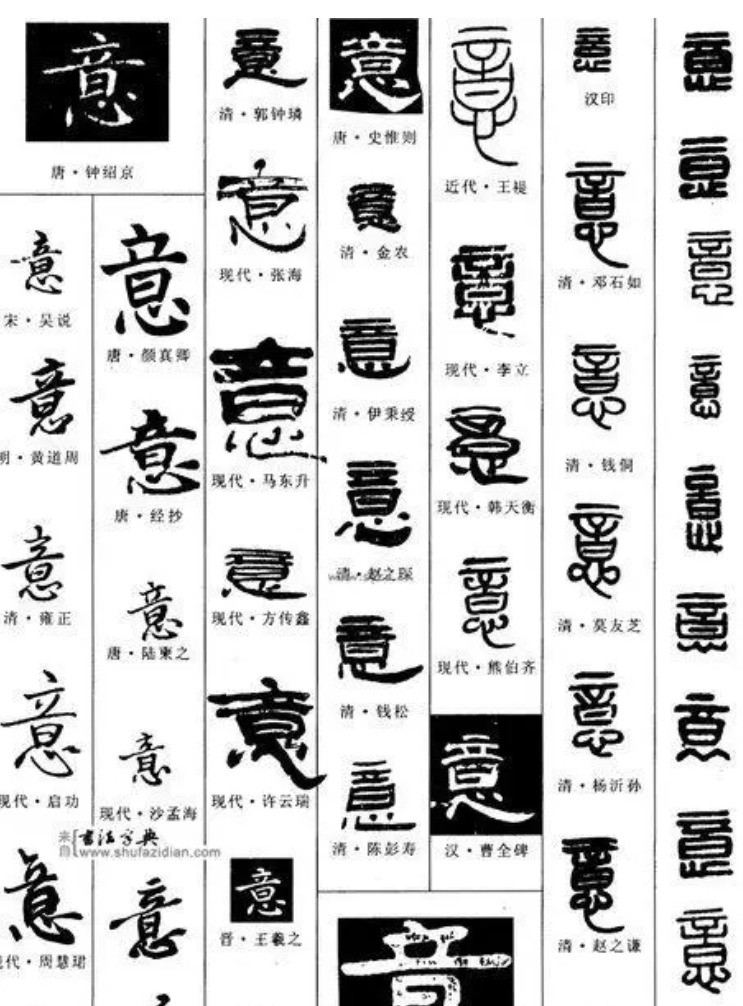 意
唐·钟绍京
意
宋·吴说
意
明·黄道周
意
清·雍正
意
现代·启功
意
现代·周慧珺
意
唐·颜真卿
意
唐·经抄
意
唐·陆柬之
意
现代·沙孟海
书法字典
www.shufazidian.com
意
意
清·郭钟璘
意
现代·张海
意
现代·马东升
意
现代·方传鑫
意
现代·许云瑞
意
晋·王羲之
意
唐·史惟则
意
清·金农
意
清·伊秉绶
意
清·赵之琛
意
清·钱松
意
清·陈彭寿
意
意
近代·王禔
意
现代·李立
意
现代·韩天衡
意
现代·熊伯齐
意
汉·曹全碑
意
汉印
意
清·邓石如
意
清·钱侗
意
清·莫友芝
意
清·杨沂孙
意
清·赵之谦
意
意
意
意
意
意
意
意
意